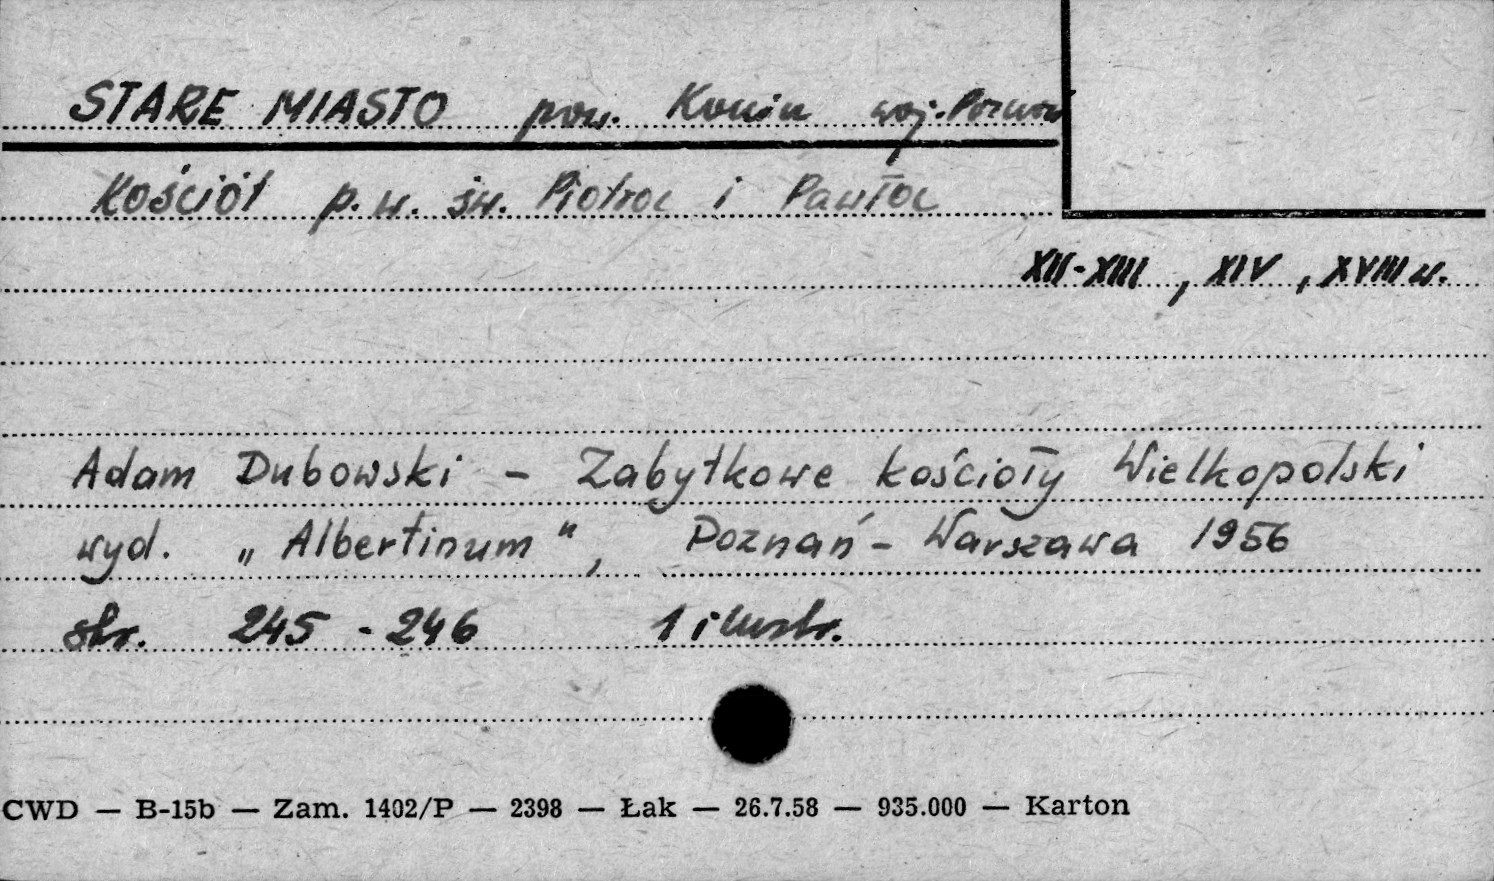 STARE MIASTO pow. Konin woj. Poznań
Kościół p.w. św. Piotra i Pawła
XII-XIII, XIV, XVIII w.
Adam Dubowski - Zabytkowe kościoły Wielkopolski
wyd. „Albertinum", Poznań - Warszawa 1956
str. 245 - 246 1 ilustr.
CWD — B-15b — Zam. 1402/P — 2398 — Łak — 26.7.58 — 935.000 — Karton